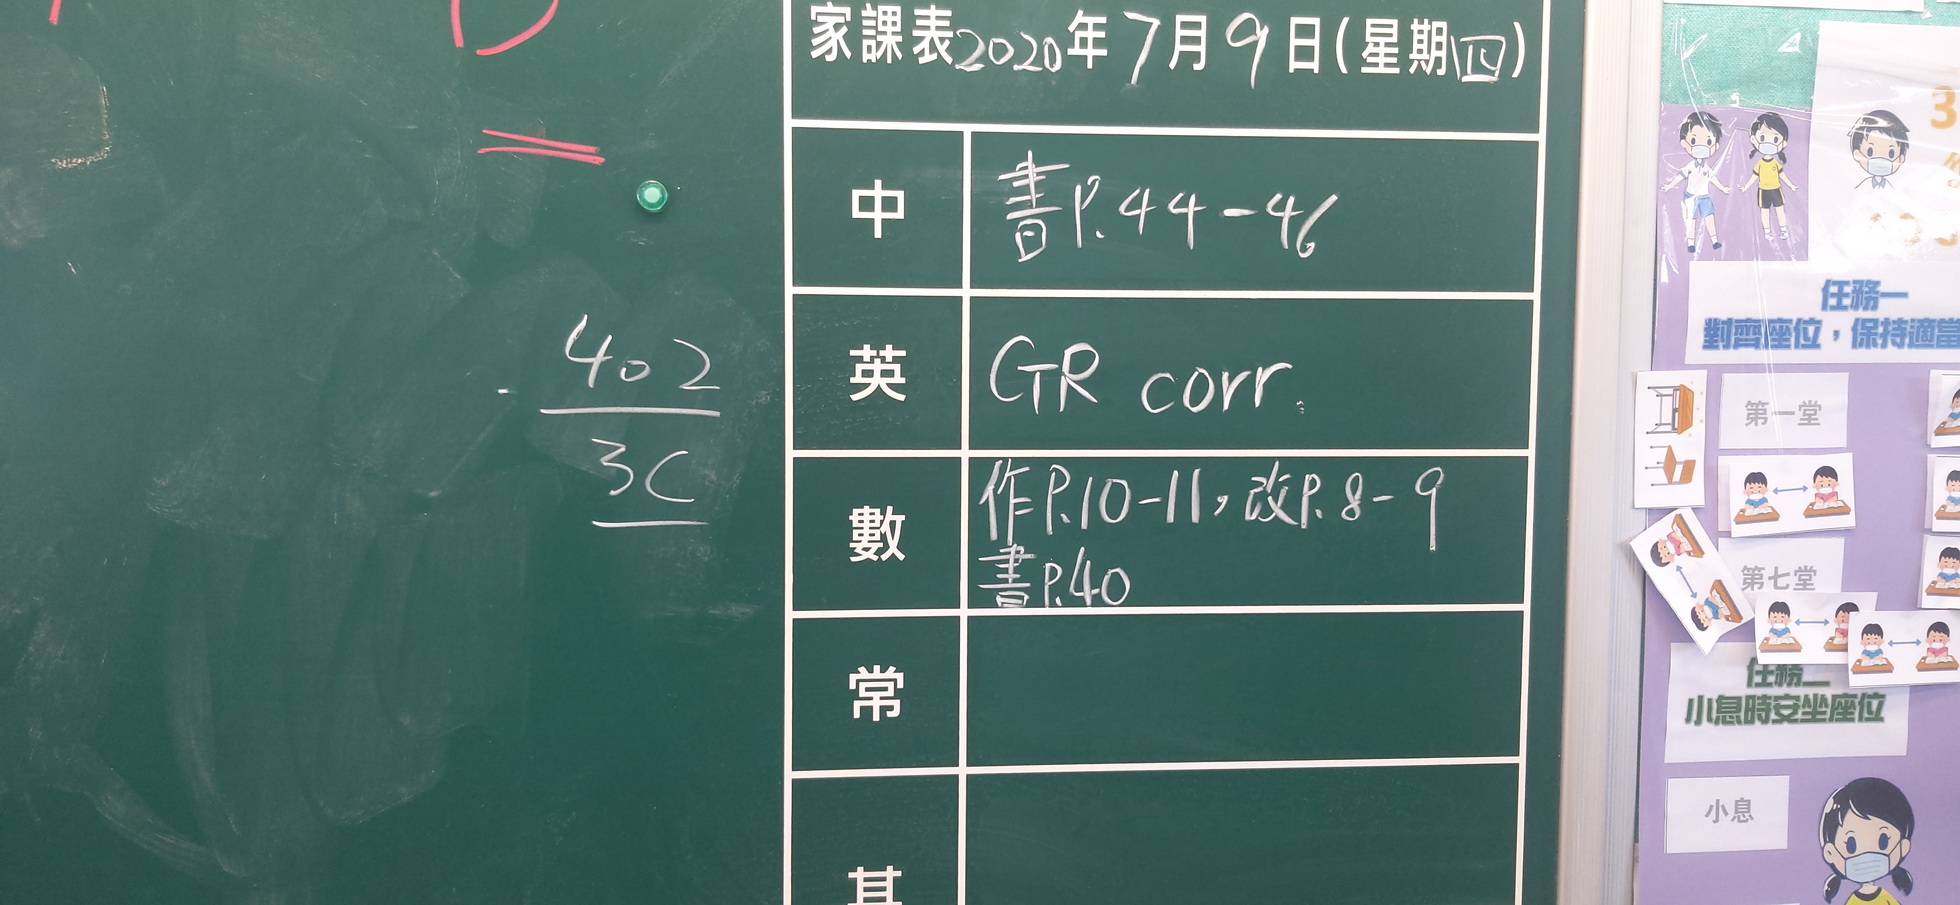 家課表2020年7月9日(星期四)
中 書P.44-46
英 GR corr.
數 作P.10-11,改P.8-9
書P.40
常
其
402
3C
3
任務一
對齊座位,保持適當
第一堂
第七堂
任務二
小息時安坐座位
小息